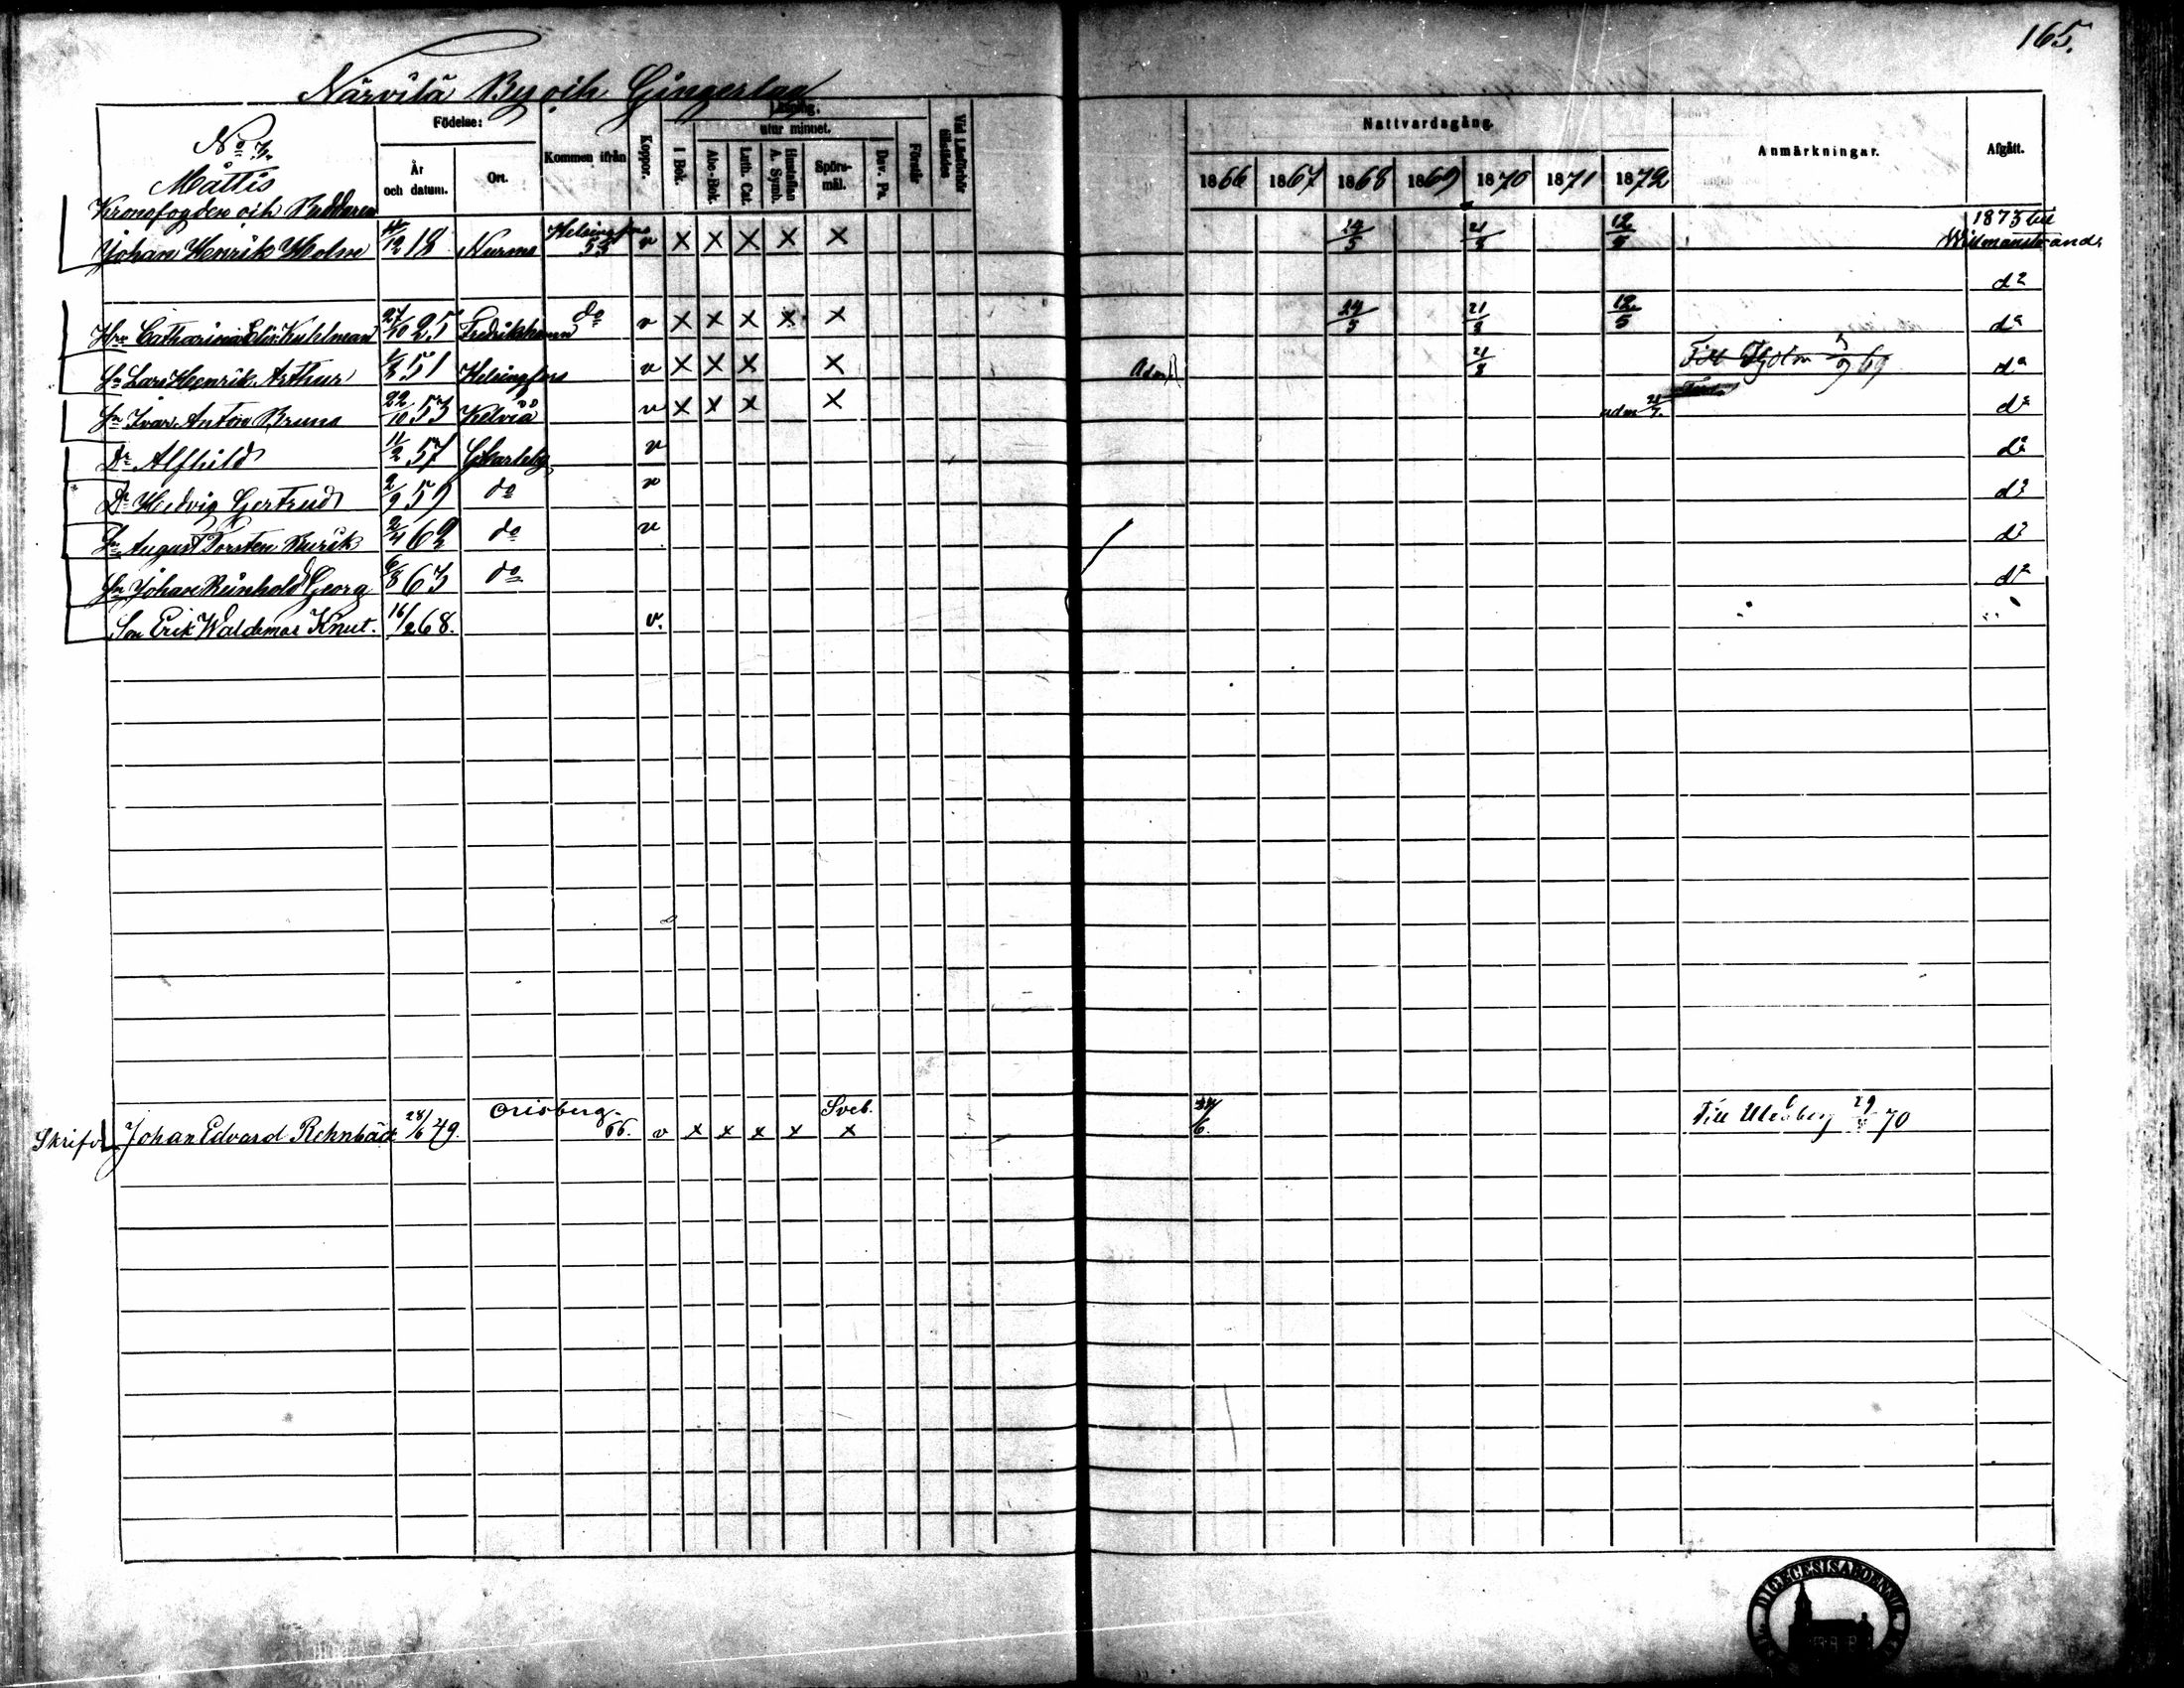 165.
Närvilä By och Gingerlag
No 3.
Mattis
Födelse:
År och datum.
Ort.
Kommen ifrån
Koppor.
Läsning.
utur minnet.
I Bok.
Abc-Bok.
Luth. Cat.
Hustaflan A. Symb.
Spörsmål.
Dav. Ps.
Förstår
Vid Läsförhör tillstädes
Nattvardsgång.
1866 1867 1868 1869 1870 1871 1872
Anmärkningar.
Afgått.
Kronofogden och Riddaren
Johan Henrik Holm 12 18 Nurmo Helsingfors 53 v × × × × × 24/5 21/8 12/5 1873 till Willmanstrand
do
Hu Catharina Elis. Kuhlman 27/10 25 Fredrikshamn do v × × × × × 24/5 21/8 12/5 do
Sn Lars Henrik Arthur 1/8 51 Helsingfors v × × × × Adm 21/8 Till 69 do
Sn Ivar Anton Bruno 22/10 53 Kelviå v × × × × adm 21/7. do
Dr Alfhild 11/2 57 GCarleby v do
Dr Hedvig Gertrud 2/9 59 do v do
Sn August Torsten Rurik 2/4 62 do v do
Sn Johan Reinhold Georg 6/8 63 do do
Son Erik Waldemar Knut. 16/2 68. v.
Skrifv. Johan Edvard Rehnbäck 28/6 49. Orisberg. 66. v × × × × Sveb. × 24/6. Till Uleåborg 29 70
DIOECESIS ABOENSIS